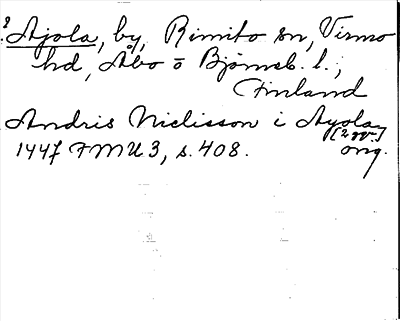 ? Ajola, by, Rimito sn, Virmo
hd, Åbo o Björneb. l.,
Finland
Andris Nielisson i Ayola
[2 ggr.]
1447 FMU 3, s. 408. orig.